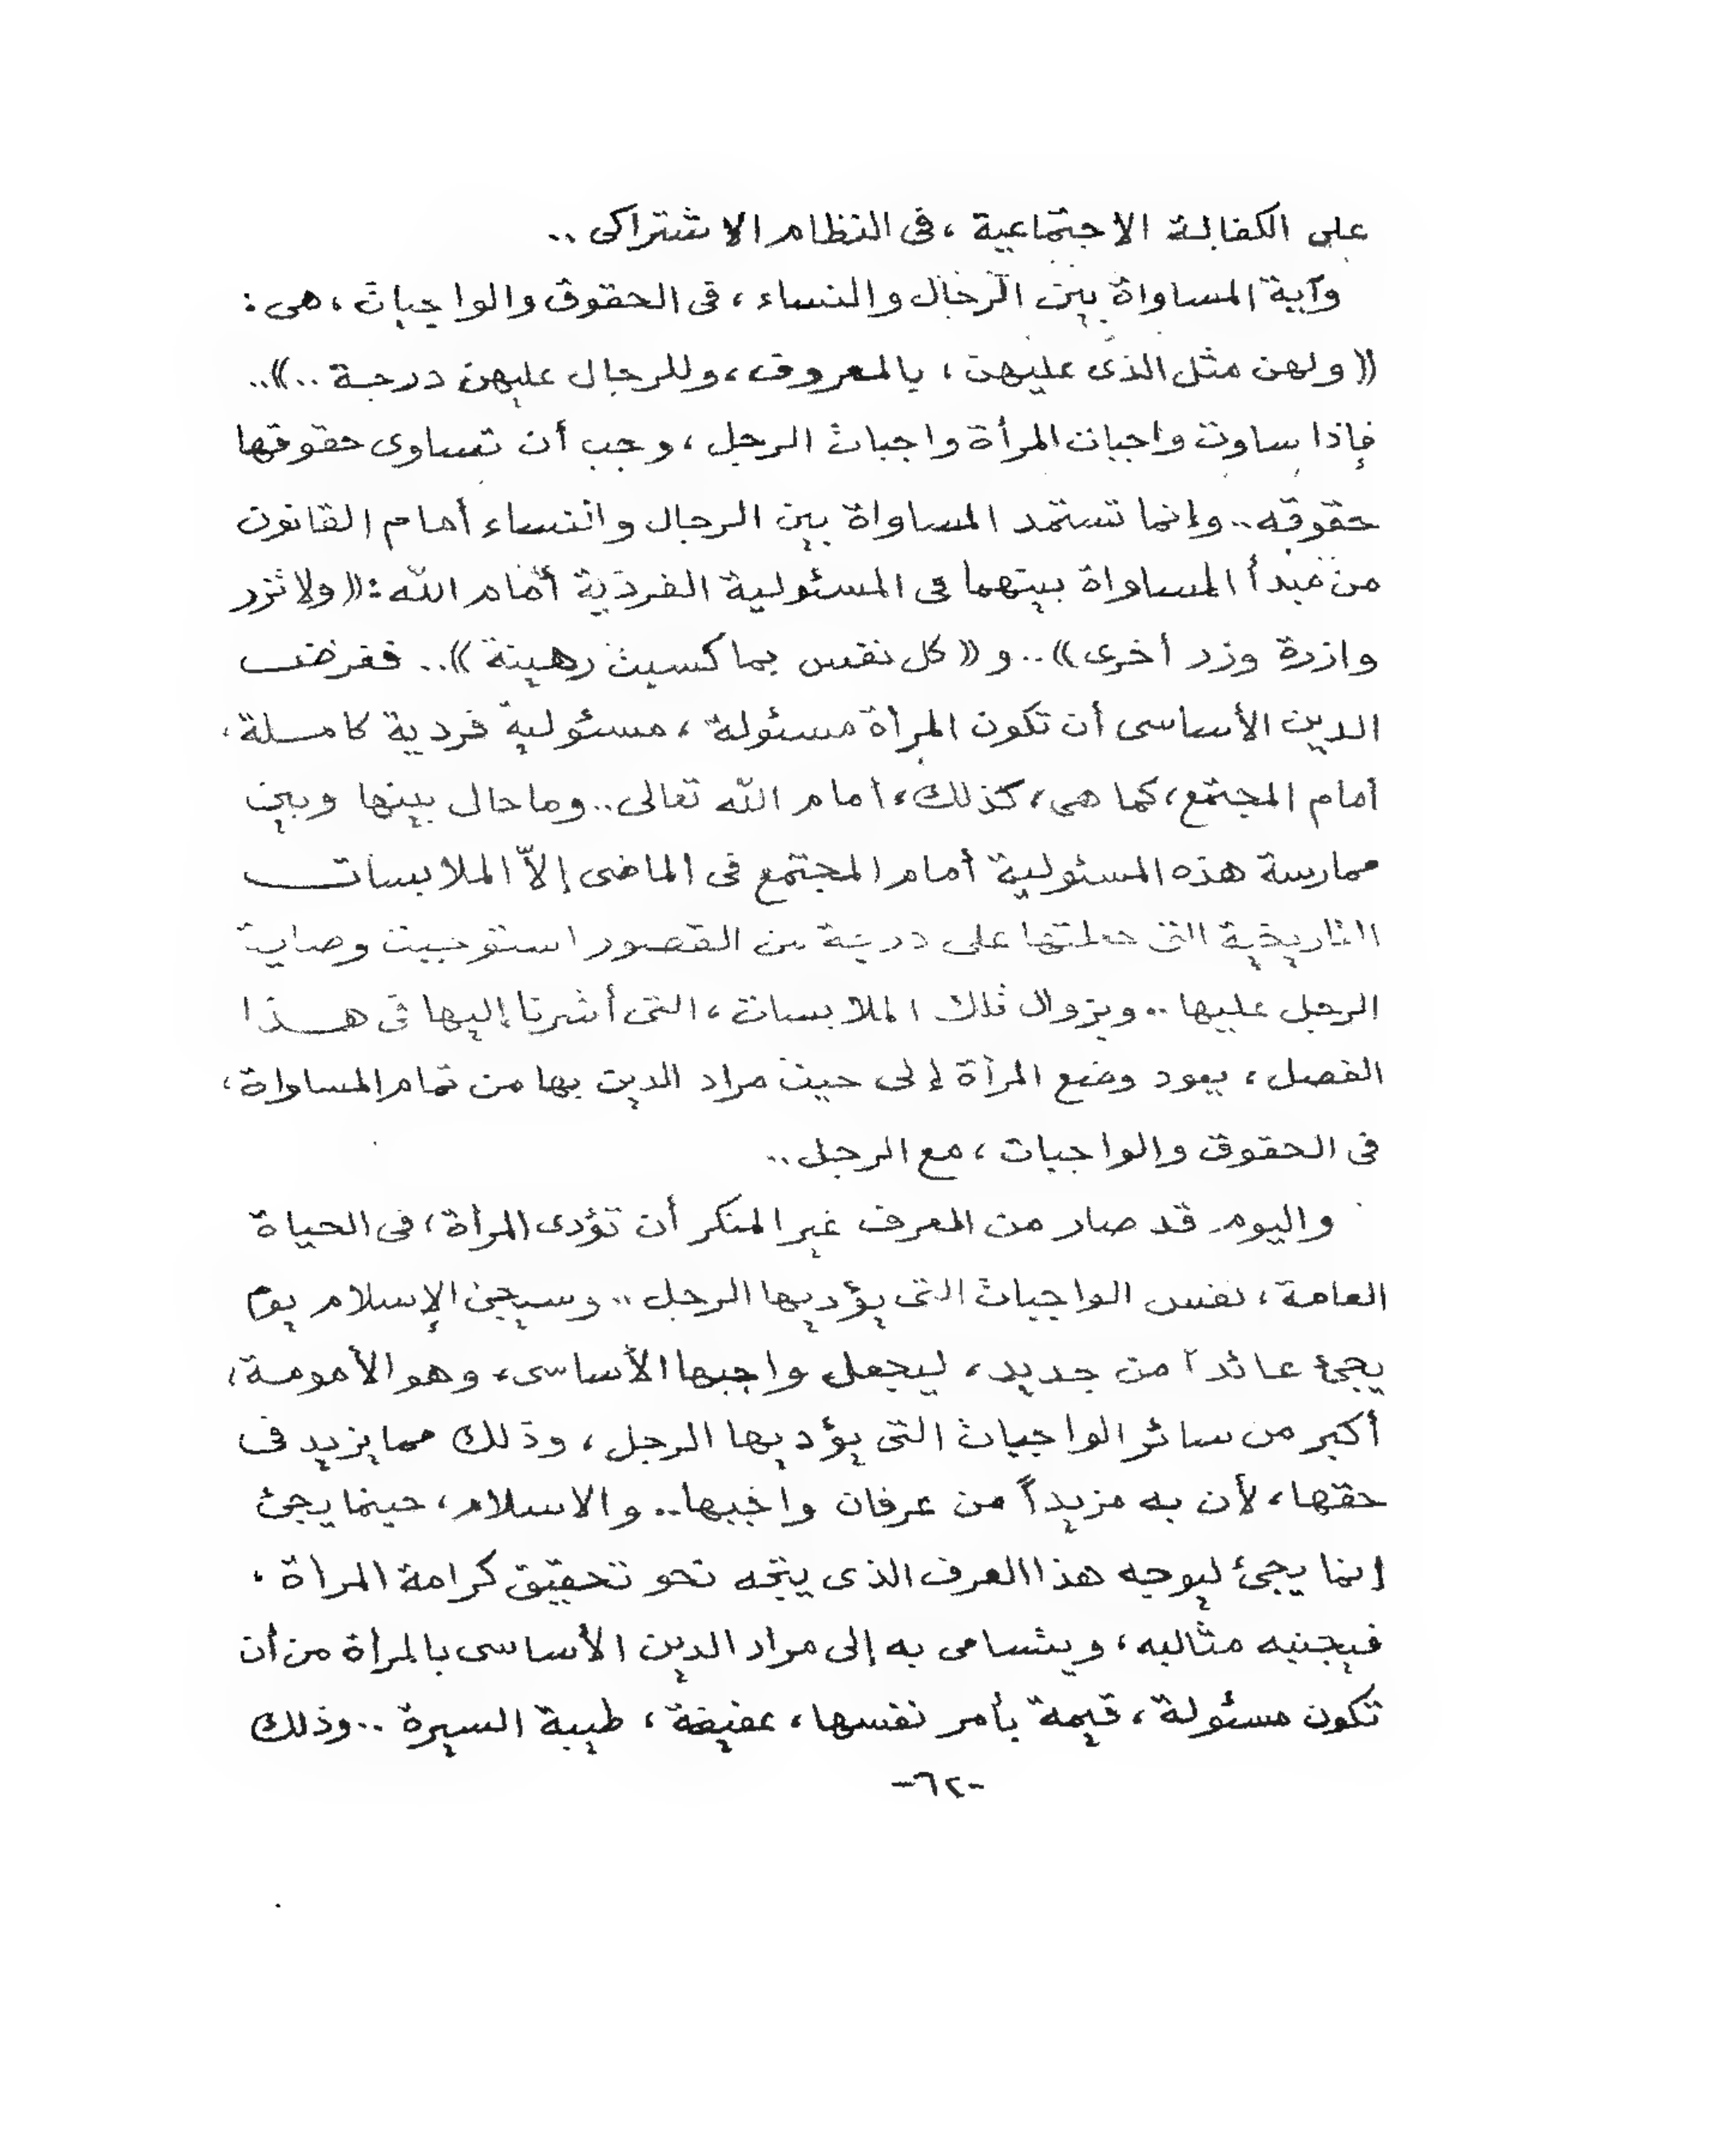 على الكفالة الاجتماعية ، فى النظام الاشتراكى ..
وآية المساواة بين الرجال والنساء ، فى الحقوق والواجبات ، هى :
(( ولهن مثل الذى عليهن ، بالمعروف ، وللرجال عليهن درجة .. )) ..
فإذا ساوت واجبات المرأة واجبات الرجل ، وجب أن تساوى حقوقها
حقوقه .. وإنما تستمد المساواة بين الرجال والنساء أمام القانون
من مبدأ المساواة بينهما فى المسئولية الفردية أمام الله : (( ولا تزر
وازرة وزر أخرى )) .. و (( كل نفس بما كسبت رهينة )) .. ففرض
الدين الأساسى أن تكون المرأة مسئولة ، مسئولية فردية كاملة ،
أمام المجتمع ، كما هى ، كذلك ، أمام الله تعالى .. وما حال بينها وبين
ممارسة هذه المسئولية أمام المجتمع فى الماضى إلاّ الملابسات
التاريخية التى جعلتها على درجة من القصور استوجبت وصاية
الرجل عليها .. وبزوال تلك الملابسات ، التى أشرنا إليها فى هذا
الفصل ، يعود وضع المرأة إلى حيث مراد الدين بها من تمام المساواة ،
فى الحقوق والواجبات ، مع الرجل ..
واليوم قد صار من العرف غير المنكر أن تؤدى المرأة ، فى الحياة
العامة ، نفس الواجبات التى يؤديها الرجل .. وسيجئ الإسلام يوم
يجئ عائداً من جديد ، ليجعل واجبها الأساسى ، وهو الأمومة ،
أكبر من سائر الواجبات التى يؤديها الرجل ، وذلك مما يزيد فى
حقها ، لأن به مزيداً من عرفان واجبها .. والاسلام ، حينما يجئ
إنما يجئ ليوجه هذا العرف الذى يتجه نحو تحقيق كرامة المرأة ،
فيجنبه مثالبه ، ويتسامى به إلى مراد الدين الأساسى بالمرأة من أن
تكون مسئولة ، قيمة بأمر نفسها ، عفيفة ، طيبة السيرة .. وذلك
-٦٢-